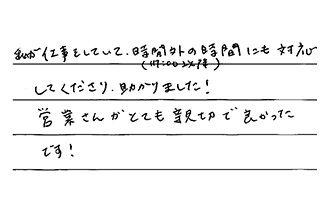 私が仕事をしていて、時間外の時間にも対応
(17:00以降)
してくださり、助かりました!
営業さんがとても親切で良かった
です!